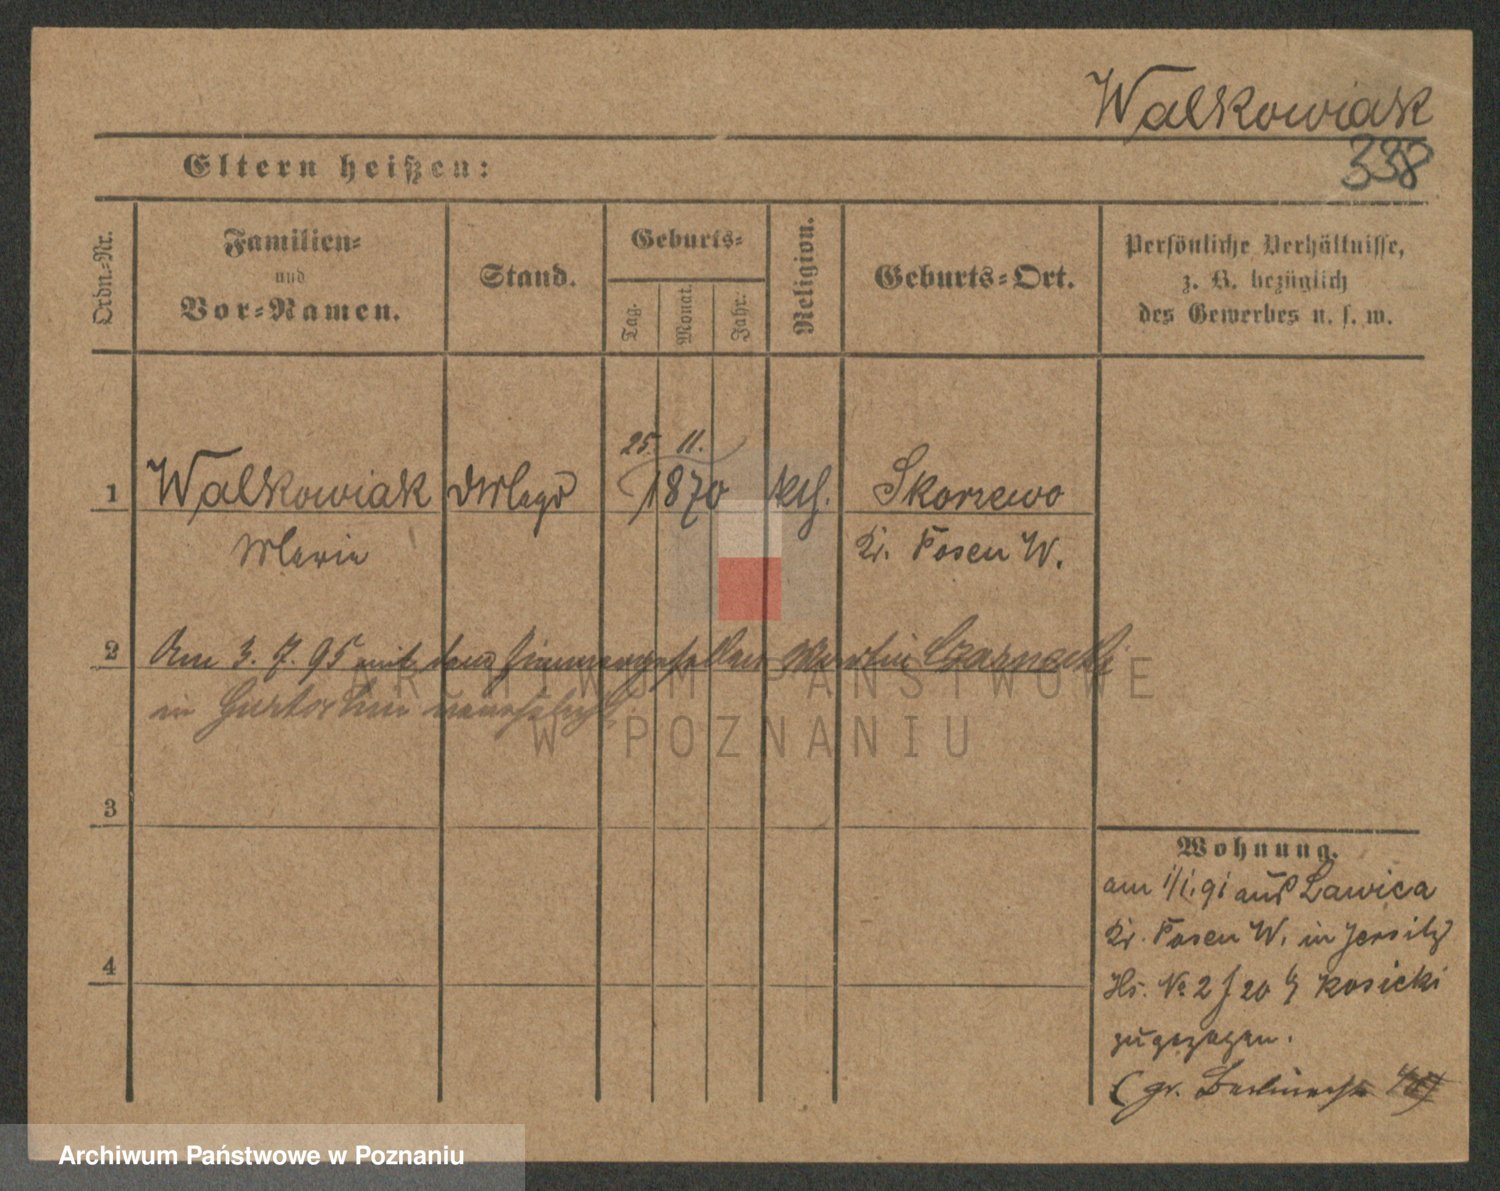 Walkowiak
338
Eltern heißen:
Ordn.-Nr.
Familien-
und
Vor-Namen.
Stand.
Geburts-
Tag.
Monat.
Jahr.
Religion.
Geburts-Ort.
Persönliche Verhältnisse,
z. B. bezüglich
des Gewerbes u. s. w.
25. 11.
1 Walkowiak Magd 1870 kth. Skorzewo
Marie Kr. Posen W.
2 Am 3. 7. 95 mit dem Zimmergesellen Martin Czarnecki
in verehelicht.
3
Wohnung.
am 1/1. 91 aus Lawica
Kr. Posen W. in Jersitz
4
Hs. No 2 20 Kosicki
zugezogen.
(gr. Berlinerstr
ARCHIWUM PAŃSTWOWE
W POZNANIU
Archiwum Państwowe w Poznaniu